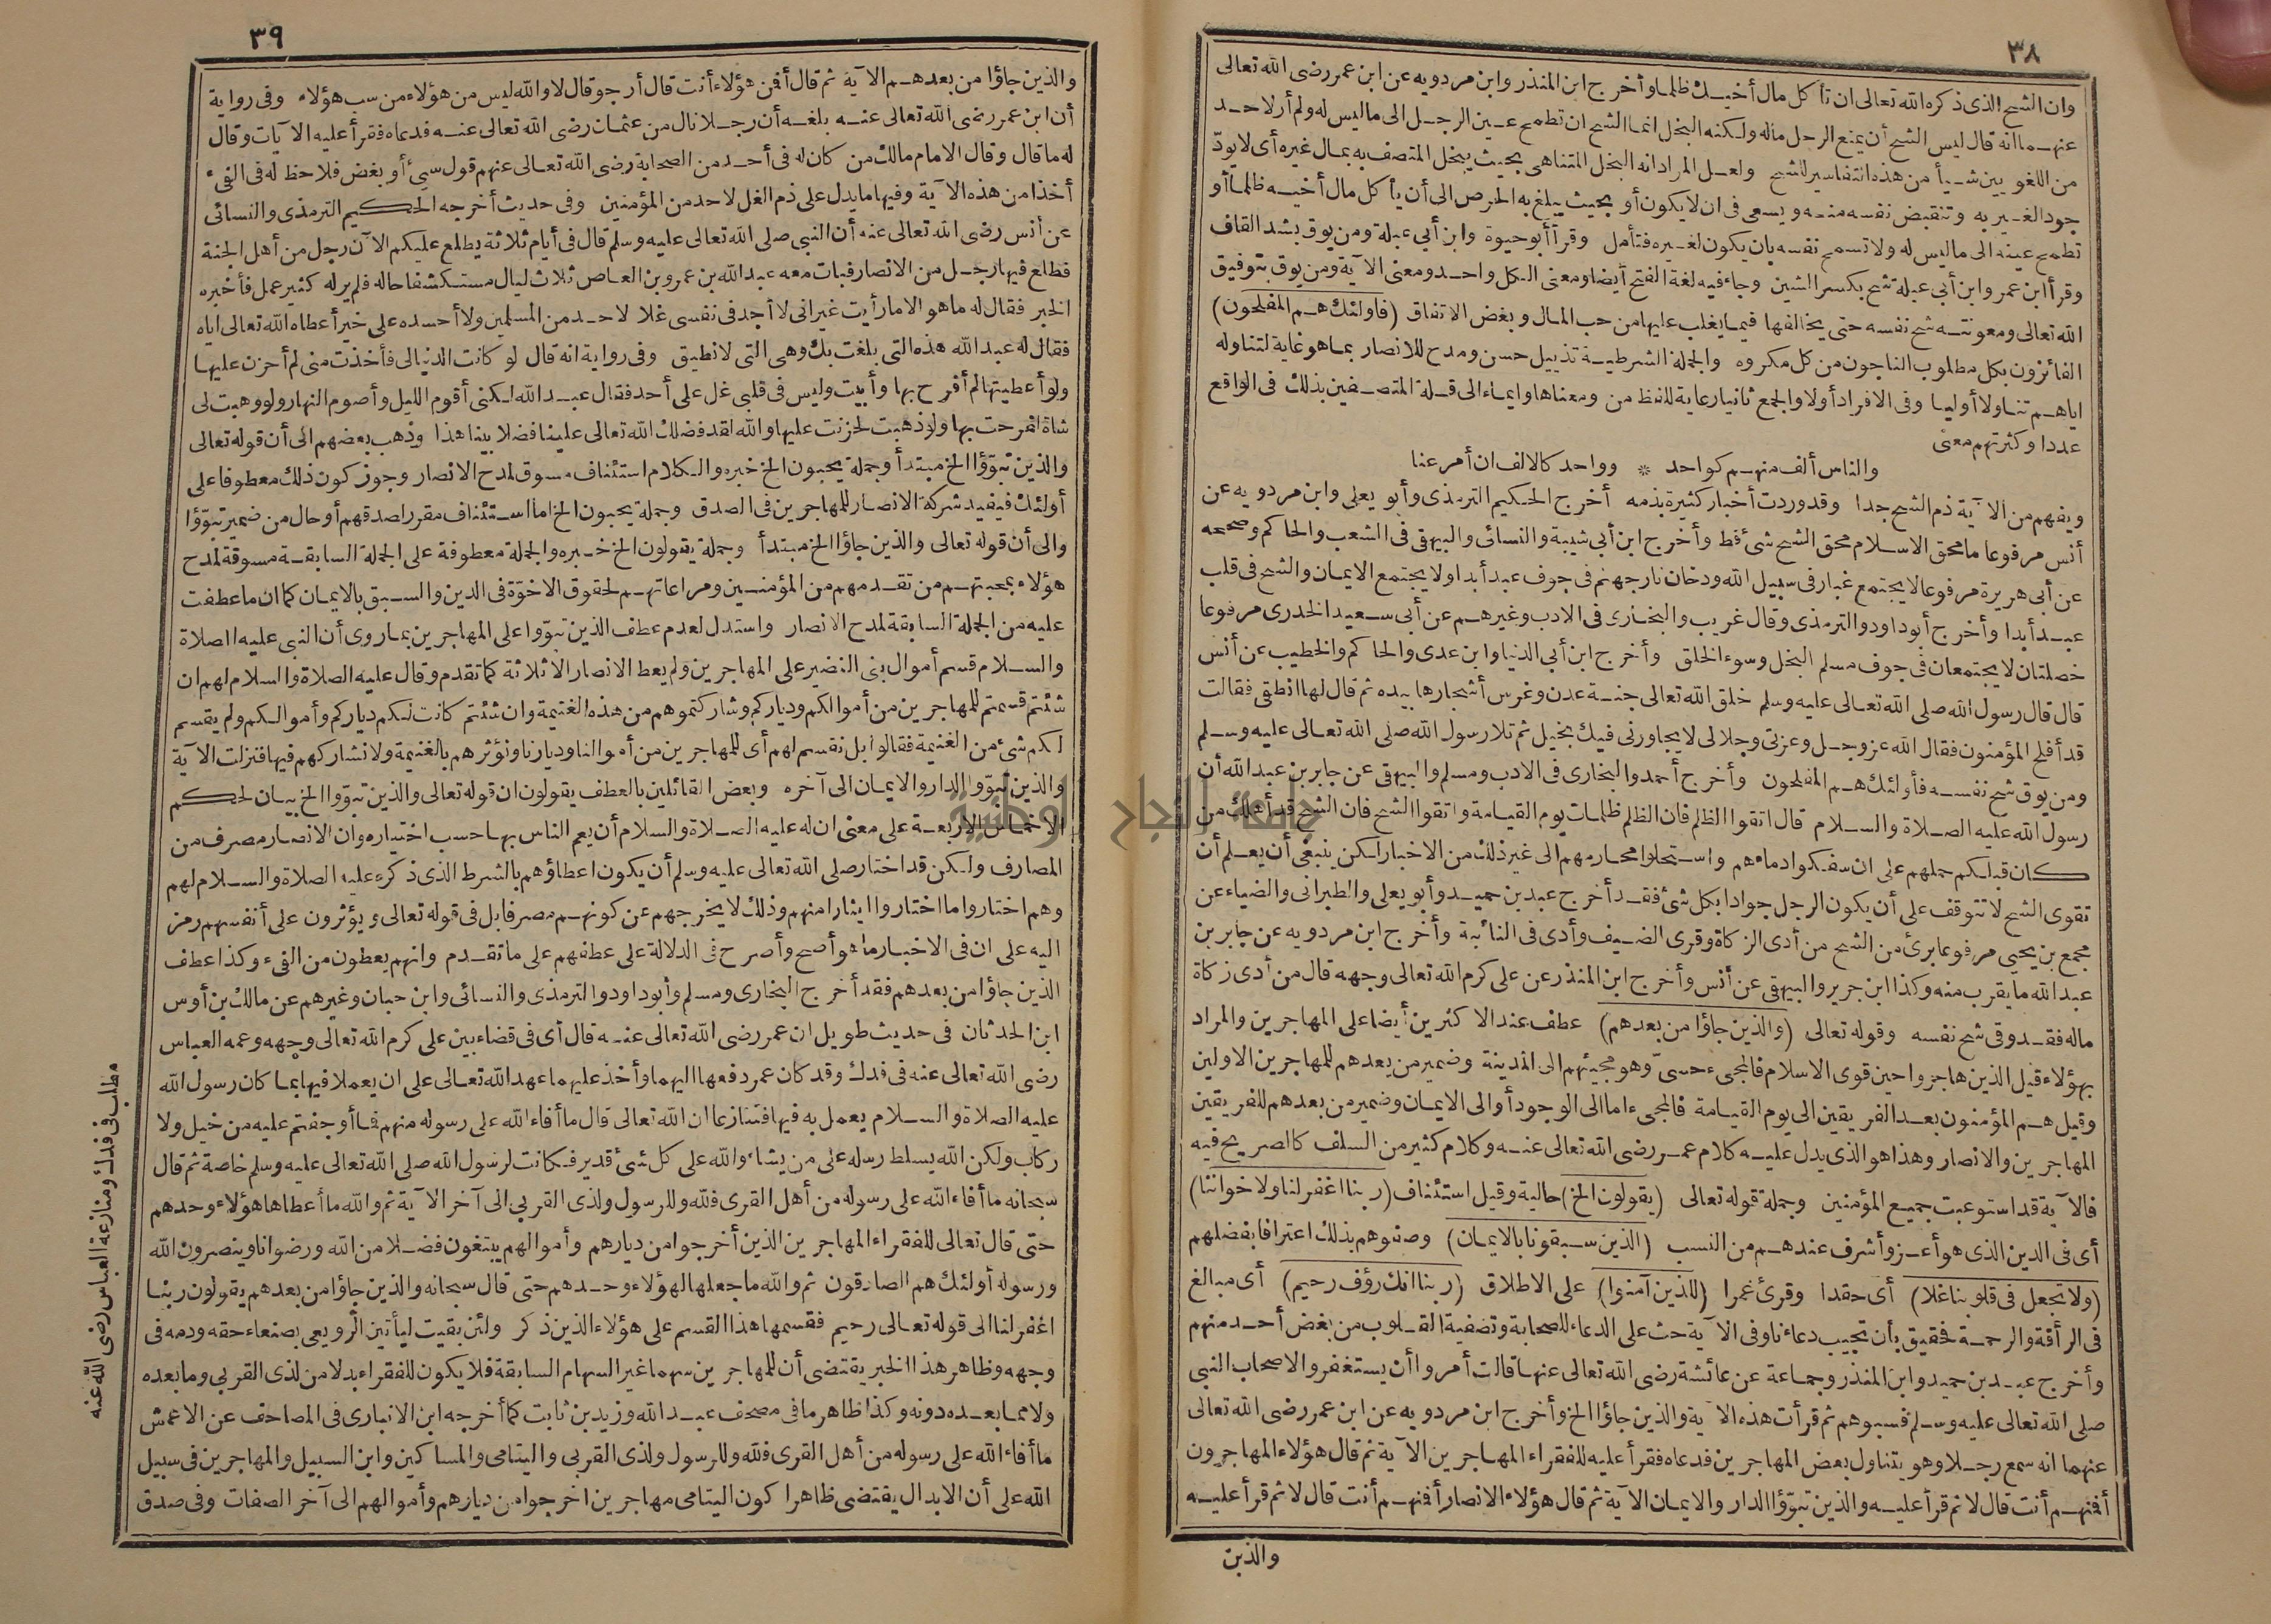 ٣٨
وان الشح الذى ذكره الله تعالى ان تأكل مال أخيك ظلما وأخرج ابن المنذر وابن مردويه عن ابن عمر رضى الله تعالى
عنهما انه قال ليس الشح أن يمنع الرجل ماله ولكنه البخل انما الشح ان تطمح عين الرجل الى ما ليس له ولم أر لاحد
من اللغويين شيأ من هذه التفاسير للشح ولعل المراد انه البخل المتناهى بحيث يبخل المتصف به بمال غيره أى لا يودّ
جود الغير به وتنقبض نفسه منه ويسعى فى ان لا يكون أو بحيث يبلغ به الحرص الى أن يأكل مال أخيه ظلما أو
تطمح عينه الى ما ليس له ولا تسمح نفسه بان يكون لغيره فتأمل وقرأ أبو حيوة وابن أبى عبلة ومن يوق بشد القاف
وقرأ ابن عمر وابن أبى عبلة شح بكسر الشين وجاء فيه لغة الفتح أيضا ومعنى الكل واحد ومعنى الآية ومن يوق بتوفيق
الله تعالى ومعونته شح نفسه حتى يخالفها فيما يغلب عليها من حب المال وبغض الانفاق (فأولئك هم المفلحون)
الفائزون بكل مطلوب الناجون من كل مكروه والجملة الشرطية تذييل حسن ومدح للانصار بما هو غاية لتناوله
اياهم تناولا أوليا وفى الافراد أولا والجمع ثانيا رعاية للفظ من ومعناها وايماء الى قلة المتصفين بذلك فى الواقع
عددا وكثرتهم معنى
والناس ألف منهم كواحد * وواحد كالالف ان أمر عنا
ويفهم من الآية ذم الشح جدا وقد وردت أخبار كثيرة بذمه أخرج الحكيم الترمذى وأبو يعلى وابن مردويه عن
أنس مرفوعا ما محق الاسلام محق الشح شئ قط وأخرج ابن أبى شيبة والنسائى والبيهقى فى الشعب والحاكم وصححه
عن أبى هريرة مرفوعا لا يجتمع غبار فى سبيل الله ودخان نار جهنم فى جوف عبد أبدا ولا يجتمع الايمان والشح فى قلب
عبد أبدا وأخرج أبو داود والترمذى وقال غريب والبخارى فى الادب وغيرهم عن أبى سعيد الخدرى مرفوعا
خصلتان لا يجتمعان فى جوف مسلم البخل وسوء الخلق وأخرج ابن أبى الدنيا وابن عدى والحاكم والخطيب عن أنس
قال قال رسول الله صلى الله تعالى عليه وسلم خلق الله تعالى جنة عدن وغرس أشجارها بيده ثم قال لها انطقى فقالت
قد أفلح المؤمنون فقال الله عز وجل وعزتى وجلالى لا يجاورنى فيك بخيل ثم تلا رسول الله صلى الله تعالى عليه وسلم
ومن يوق شح نفسه فأولئك هم المفلحون وأخرج أحمد والبخارى فى الادب ومسلم والبيهقى عن جابر بن عبد الله أن
رسول الله عليه الصلاة والسلام قال اتقوا الظلم فان الظلم ظلمات يوم القيامة واتقوا الشح فان الشح قد أهلك من
كان قبلكم حملهم على ان سفكوا دماءهم واستحلوا محارمهم الى غير ذلك من الاخبار لكن ينبغى أن يعلم أن
تقوى الشح لا تتوقف على أن يكون الرجل جوادا بكل شئ فقد أخرج عبد بن حميد وأبو يعلى والطبرانى والضياء عن
مجمع بن يحيى مرفوعا برئ من الشح من أدى الزكاة وقرى الضيف وأدى فى النائبة وأخرج ابن مردويه عن جابر بن
عبد الله ما يقرب منه وكذا ابن جرير والبيهقى عن أنس وأخرج ابن المنذر عن على كرم الله تعالى وجهه قال من أدى زكاة
ماله فقد وقى شح نفسه وقوله تعالى (والذين جاؤا من بعدهم) عطف عند الاكثرين أيضا على المهاجرين والمراد
بهؤلاء قيل الذين هاجروا حين قوى الاسلام فالمجىء حسىّ وهو مجيئهم الى المدينة وضمير من بعدهم للمهاجرين الاولين
وقيل هم المؤمنون بعد الفريقين الى يوم القيامة فالمجىء اما الى الوجود أو الى الايمان وضمير من بعدهم للفريقين
المهاجرين والانصار وهذا هو الذى يدل عليه كلام عمر رضى الله تعالى عنه وكلام كثير من السلف كالصريح فيه
فالآية قد استوعبت جميع المؤمنين وجملة قوله تعالى (يقولون الخ) حالية وقيل استئناف (ربنا اغفر لنا ولاخواننا)
أى فى الدين الذى هو أعز وأشرف عندهم من النسب (الذين سبقونا بالايمان) وصفوهم بذلك اعترافا بفضلهم
(ولا تجعل فى قلوبنا غلا) أى حقدا وقرئ غمرا (للذين آمنوا) على الاطلاق (ربنا انك رؤف رحيم) أى مبالغ
فى الرأفة والرحمة فحقيق بأن تجيب دعاءنا وفى الآية حث على الدعاء للصحابة وتصفية القلوب من بغض أحد منهم
وأخرج عبد بن حميد وابن المنذر وجماعة عن عائشة رضى الله تعالى عنها قالت أمروا أن يستغفروا لاصحاب النبى
صلى الله تعالى عليه وسلم فسبوهم ثم قرأت هذه الآية والذين جاؤا الخ وأخرج ابن مردويه عن ابن عمر رضى الله تعالى
عنهما انه سمع رجلا وهو يتناول بعض المهاجرين فدعاه فقرأ عليه للفقراء المهاجرين الآية ثم قال هؤلاء المهاجرون
أفنهم أنت قال لا ثم قرأ عليه والذين تبوّؤا الدار والايمان الآية ثم قال هؤلاء الانصار أفنهم أنت قال لا ثم قرأ عليه
والذين
٣٩
والذين جاؤا من بعدهم الآية ثم قال أفمن هؤلاء أنت قال أرجو قال لا والله ليس من هؤلاء من سب هؤلاء وفى رواية
أن ابن عمر رضى الله تعالى عنه بلغه أن رجلا نال من عثمان رضى الله تعالى عنه فدعاه فقرأ عليه الآيات وقال
له ما قال وقال الامام مالك من كان له فى أحد من الصحابة رضى الله تعالى عنهم قول سىئ أو بغض فلا حظ له فى الفىء
أخذا من هذه الآية وفيها ما يدل على ذم الغل لاحد من المؤمنين وفى حديث أخرجه الحكيم الترمذى والنسائى
عن أنس رضى الله تعالى عنه أن النبى صلى الله تعالى عليه وسلم قال فى أيام ثلاثة يطلع عليكم الآن رجل من أهل الجنة
فطلع فيها رجل من الانصار فبات معه عبد الله بن عمرو بن العاص ثلاث ليال مستكشفا حاله فلم ير له كثير عمل فأخبره
الخبر فقال له ما هو الا ما رأيت غير انى لا أجد فى نفسى غلا لاحد من المسلمين ولا أحسده على خير أعطاه الله تعالى اياه
فقال له عبد الله هذه التى بلغت بك وهى التى لا نطيق وفى رواية انه قال لو كانت الدنيا لى فأخذت منى لم أحزن عليها
ولو أعطيتها لم أفرح بها وأبيت وليس فى قلبى غل على أحد فقال عبد الله لكنى أقوم الليل وأصوم النهار ولو وهبت لى
شاة لفرحت بها ولو ذهبت لحزنت عليها والله لقد فضلك الله تعالى علينا فضلا بينا هذا وذهب بعضهم الى أن قوله تعالى
والذين تبوّؤا الخ مبتدأ وجملة يحبون الخ خبره والكلام استئناف مسوق لمدح الانصار وجوز كون ذلك معطوفا على
أولئك فيفيد شركة الانصار للمهاجرين فى الصدق وجملة يحبون الخ اما استئناف مقرر لصدقهم أو حال من ضمير تبوّؤا
والى أن قوله تعالى والذين جاؤا الخ مبتدأ وجملة يقولون الخ خبره والجملة معطوفة على الجملة السابقة مسوقة لمدح
هؤلاء بمحبتهم من تقدمهم من المؤمنين ومراعاتهم لحقوق الاخوّة فى الدين والسبق بالايمان كما ان ما عطفت
عليه من الجملة السابقة لمدح الانصار واستدل لعدم عطف الذين تبوّؤا على المهاجرين بما روى أن النبى عليه الصلاة
والسلام قسم أموال بنى النضير على المهاجرين ولم يعط الانصار الا ثلاثة كما تقدم وقال عليه الصلاة والسلام لهم ان
شئتم قسمتم للمهاجرين من أموالكم ودياركم وشاركتموهم من هذه الغنيمة وان شئتم كانت لكم دياركم وأموالكم ولم يقسم
لكم شئ من الغنيمة فقالوا بل نقسم لهم أى للمهاجرين من أموالنا وديارنا ونؤثرهم بالغنيمة ولا نشاركهم فيها فنزلت الآية
والذين تبوّؤا الدار والايمان الى آخره وبعض القائلين بالعطف يقولون ان قوله تعالى والذين تبوّؤا الخ بيان لحكم
الاخماس الاربعة على معنى ان له عليه الصلاة والسلام أن يعم الناس بها حسب اختياره وان الانصار مصرف من
المصارف ولكن قد اختار صلى الله تعالى عليه وسلم أن يكون اعطاؤهم بالشرط الذى ذكره عليه الصلاة والسلام لهم
وهم اختاروا ما اختاروا ايثارا منهم وذلك لا يخرجهم عن كونهم مصرفا بل فى قوله تعالى ويؤثرون على أنفسهم رمز
اليه على ان فى الاخبار ما هو أصح وأصرح فى الدلالة على عطفهم على ما تقدم وانهم يعطون من الفىء وكذا عطف
الذين جاؤا من بعدهم فقد أخرج البخارى ومسلم وأبو داود والترمذى والنسائى وابن حبان وغيرهم عن مالك بن أوس
ابن الحدثان فى حديث طويل ان عمر رضى الله تعالى عنه قال أى فى قضاء بين على كرم الله تعالى وجهه وعمه العباس
رضى الله تعالى عنه فى فدك وقد كان عمر دفعها اليهما وأخذ عليهما عهد الله تعالى على ان يعملا فيها بما كان رسول الله
عليه الصلاة والسلام يعمل به فيها فتنازعا ان الله تعالى قال ما أفاء الله على رسوله منهم فما أوجفتم عليه من خيل ولا
ركاب ولكن الله يسلط رسله على من يشاء والله على كل شئ قدير فكانت لرسول الله صلى الله تعالى عليه وسلم خاصة ثم قال
سبحانه ما أفاء الله على رسوله من أهل القرى فلله وللرسول ولذى القربى الى آخر الآية ثم والله ما أعطاها هؤلاء وحدهم
حتى قال تعالى للفقراء المهاجرين الذين أخرجوا من ديارهم وأموالهم يبتغون فضلا من الله ورضوانا وينصرون الله
ورسوله أولئك هم الصادقون ثم والله ما جعلها لهؤلاء وحدهم حتى قال سبحانه والذين جاؤا من بعدهم يقولون ربنا
اغفر لنا الى قوله تعالى رحيم فقسمها هذا القسم على هؤلاء الذين ذكر ولئن بقيت ليأتين الرويعى بصنعاء حقه ودمه فى
وجهه وظاهر هذا الخبر يقتضى أن للمهاجرين سهما غير السهام السابقة فلا يكون للفقراء بدلا من لذى القربى وما بعده
ولا مما بعده دونه وكذا ظاهر ما فى مصحف عبد الله وزيد بن ثابت كما أخرجه ابن الانبارى فى المصاحف عن الاعمش
ما أفاء الله على رسوله من أهل القرى فلله وللرسول ولذى القربى واليتامى والمساكين وابن السبيل والمهاجرين فى سبيل
الله على أن الابدال يقتضى ظاهرا كون اليتامى مهاجرين اخرجوا من ديارهم وأموالهم الى آخر الصفات وفى صدق
مطلب فى فدك ومنازعة العباس رضى الله عنه
جامعة النجاح الوطنية